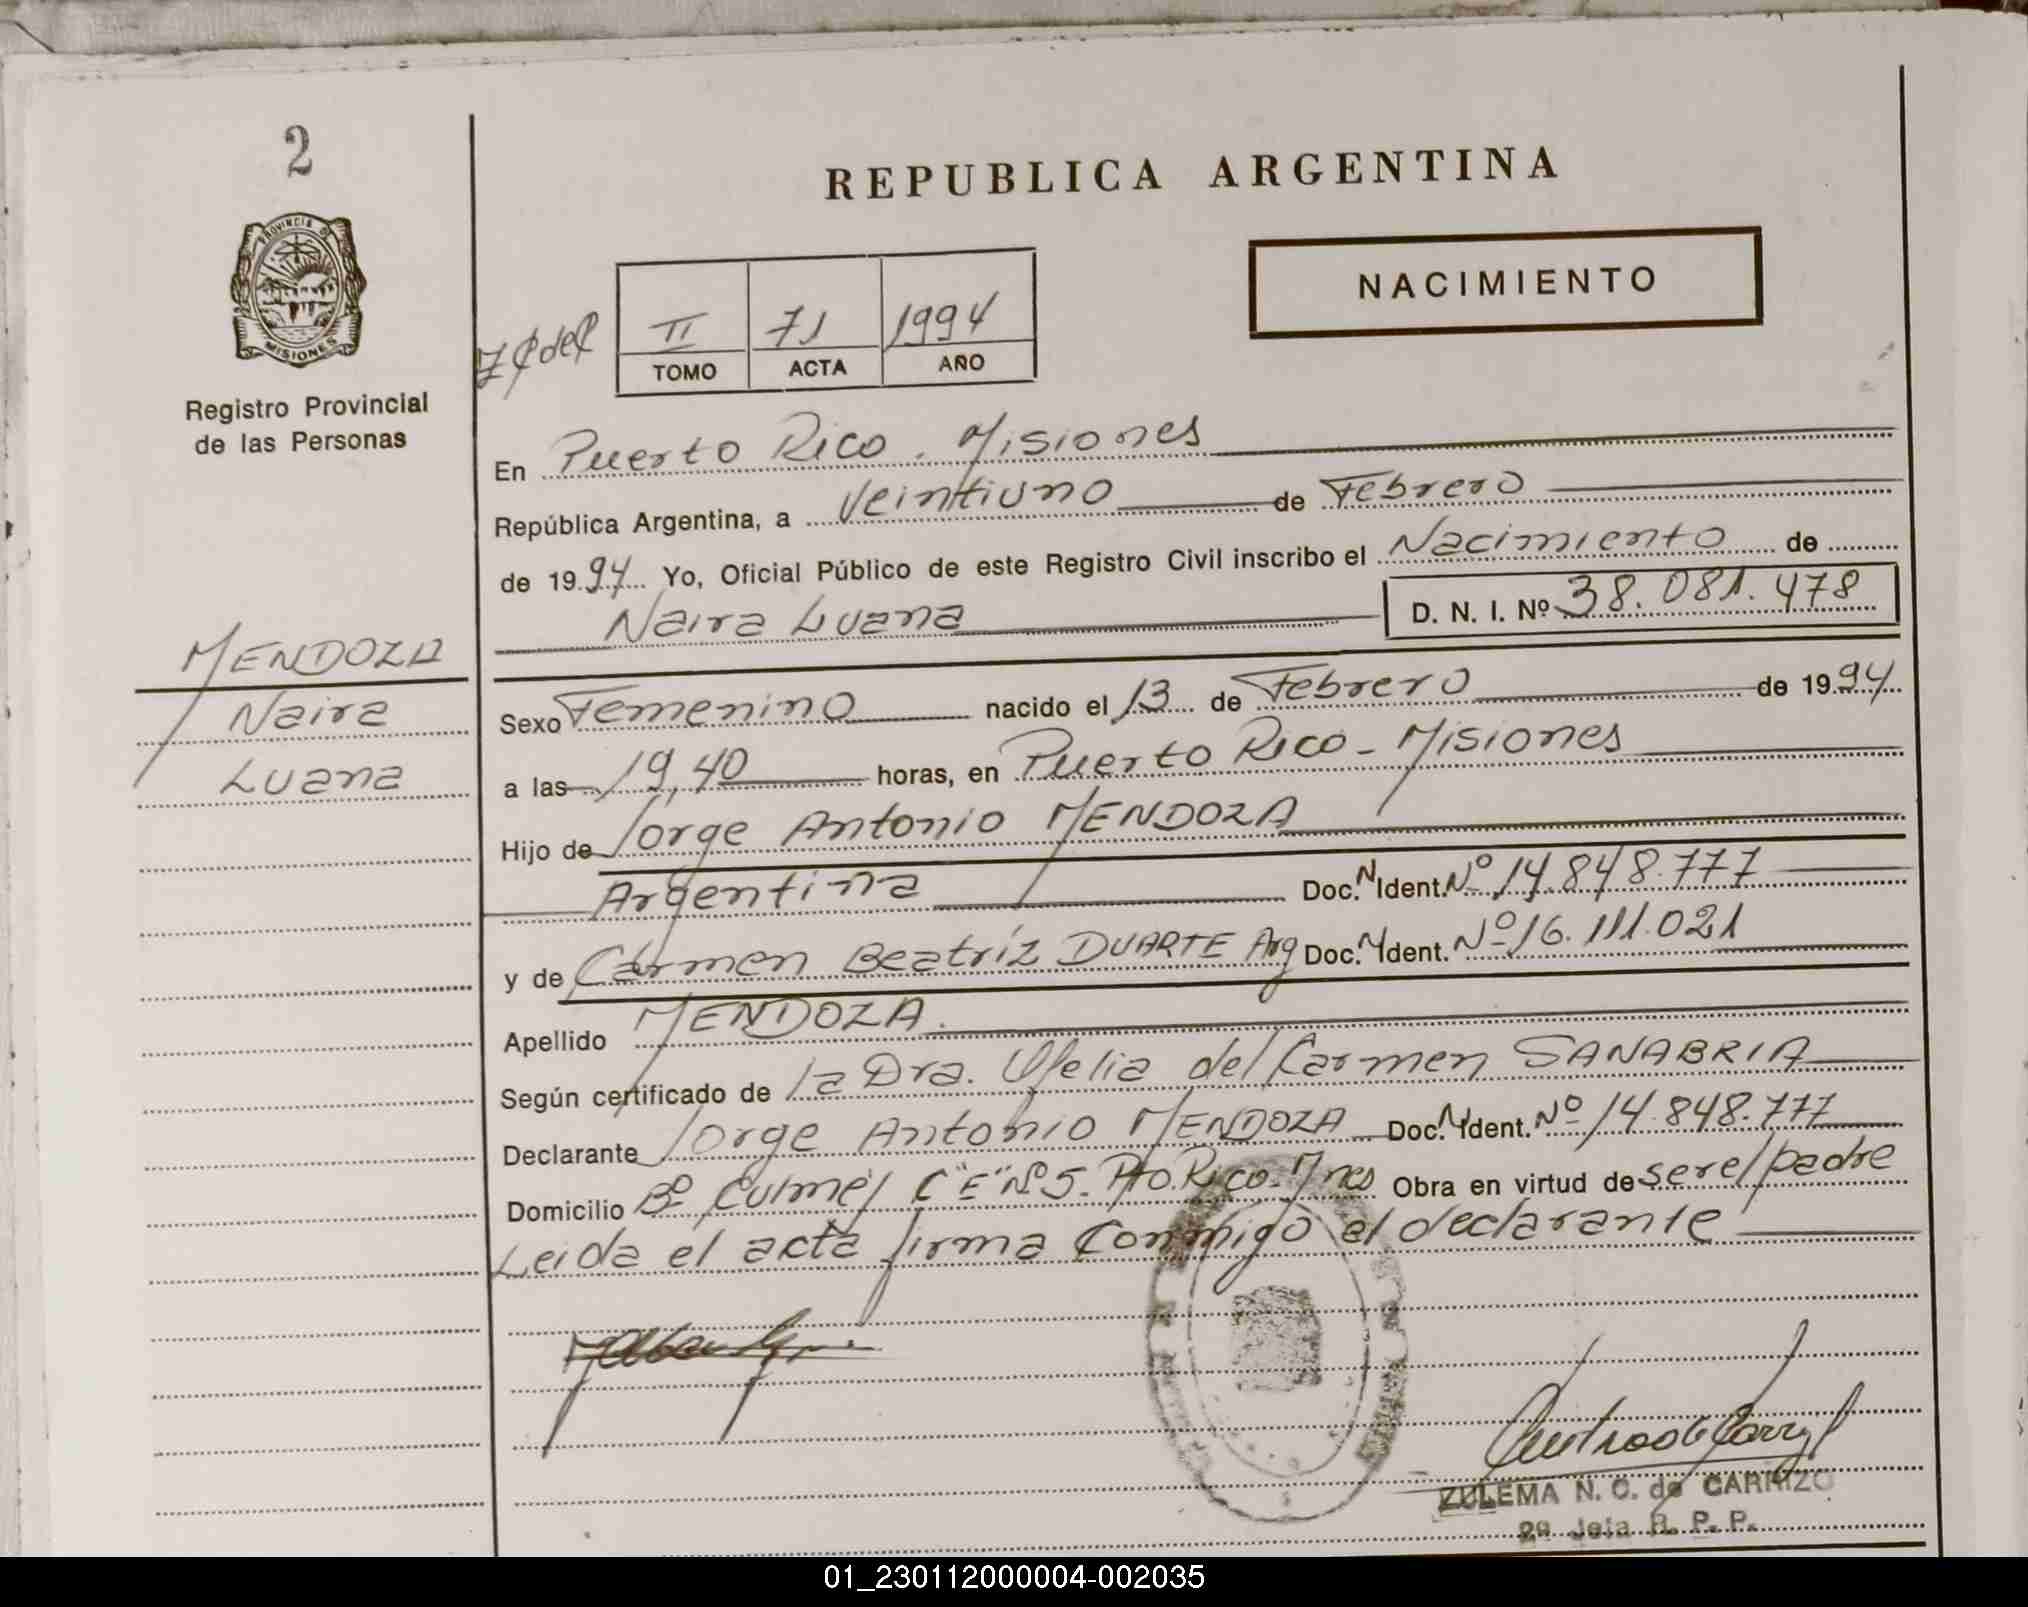 2
PROVINCIA DE
MISIONES
Registro Provincial
de las Personas
MENDOZA
Naira
Luana
REPUBLICA ARGENTINA
NACIMIENTO
II 71 1994
TOMO ACTA AÑO
En Puerto Rico. Misiones
República Argentina, a Veintiuno de Febrero
de 1994 Yo, Oficial Público de este Registro Civil inscribo el Nacimiento de
Naira Luana D. N. I. Nº 38.081.478
Sexo Femenino nacido el 13 de Febrero de 1994
a las 19,40 horas, en Puerto Rico - Misiones
Hijo de Jorge Antonio MENDOZA
Argentina Doc. N Ident. Nº 14.848.777
y de Carmen Beatríz DUARTE Arg Doc. N Ident. Nº 16.111.021
Apellido MENDOZA.
Según certificado de la Dra. Ofelia del Carmen SANABRIA
Declarante Jorge Antonio MENDOZA Doc. N Ident. Nº 14.848.777
Domicilio Bº Culmey C "E" Nº 5. Pto. Rico - Mnes Obra en virtud de ser el padre
Leida el acta firma conmigo el declarante
ZULEMA N. C. de CARRIZO
2º Jefa R. P. P.
01_230112000004-002035